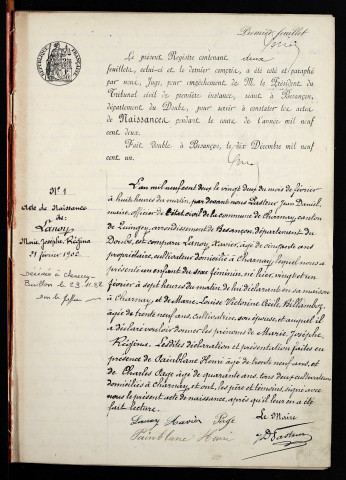 Premier feuillet
RÉPUBLIQUE FRANÇAISE
Le présent Registre contenant deux
feuillets, celui-ci et le dernier compris, a été coté et paraphé
par nous, Juge, par empêchement de M. le Président du
Tribunal civil de première instance, séant à Besançon,
département du Doubs, pour servir à constater les actes
de Naissances pendant le cours de l'année mil neuf
cent deux.
Fait double à Besançon, le dix Décembre mil neuf
cent un.
N° 1
Acte de Naissance
de:
Lanoy
Marie Josèphe Régina
21 février 1902
décédée à
le 23.11.82
L'an mil neuf cent deux le vingt deux du mois de février
à huit heures du matin, par devant nous Pasteur Jean Daniel,
maire, officier de l'état civil de la commune de Charnay, canton
de Quingey, arrondissement de Besançon, département du
Doubs, est comparu Lanoy Xavier, âgé de cinquante ans
propriétaire, cultivateur domicilié à Charnay, lequel nous a
présenté un enfant du sexe féminin, né hier, vingt et un
février à sept heures du matin de lui déclarant en sa maison
à Charnay, et de Marie Louise Victorine Cécile Billamboz,
âgée de trente neuf ans, cultivatrice, son épouse, et auquel il
a déclaré vouloir donner les prénoms de Marie Josèphe
Régina. Lesdites déclaration et présentation faites en
présence de Painblanc Henri âgé de trente neuf ans, et
de Charles âgé de quarante ans, tous deux cultivateurs
domiciliés à Charnay, et ont, les père et témoins, signé avec
nous le présent acte de naissance, après qu'il leur en a été
fait lecture.
Lanoy Xavier
Le Maire
Painblanc Henri
JD Pasteur